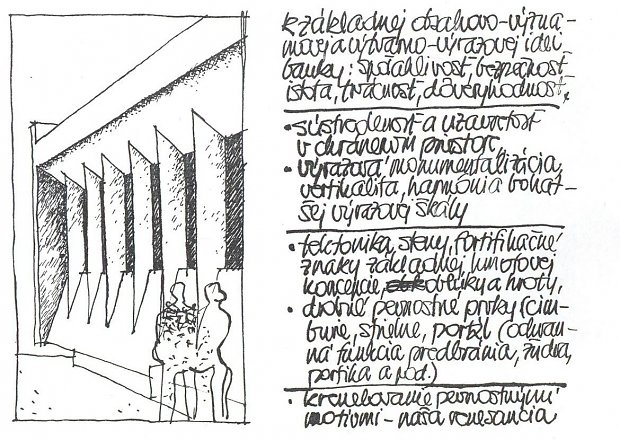 k základnej obsahovo-význa-
movej a výtvarno-výrazovej idei
banky: spoľahlivosť, bezpečnosť
istota, trvácnosť, dôveryhodnosť,
• sústredenosť a uzavretosť
v chránenom priestore
• výrazová monumentalizácia,
vertikalita, harmónia bohat-
šej výrazovej škály
• tektonika, steny, fortifikačné
znaky základnej hmotovej
koncepcie, oblúky a hroty,
• drobné pevnostné prvky (cim-
burie, strielne, portál (ochran-
ná funkcia predbránia, žudra,
portika a pod.)
• krenelovanie pevnostnými
motívmi - naša renesancia